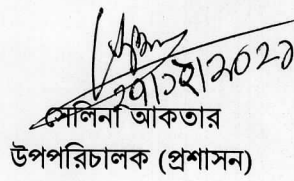 ২৭/১২/২০২১
সেলিনা আকতার
উপপরিচালক (প্রশাসন)